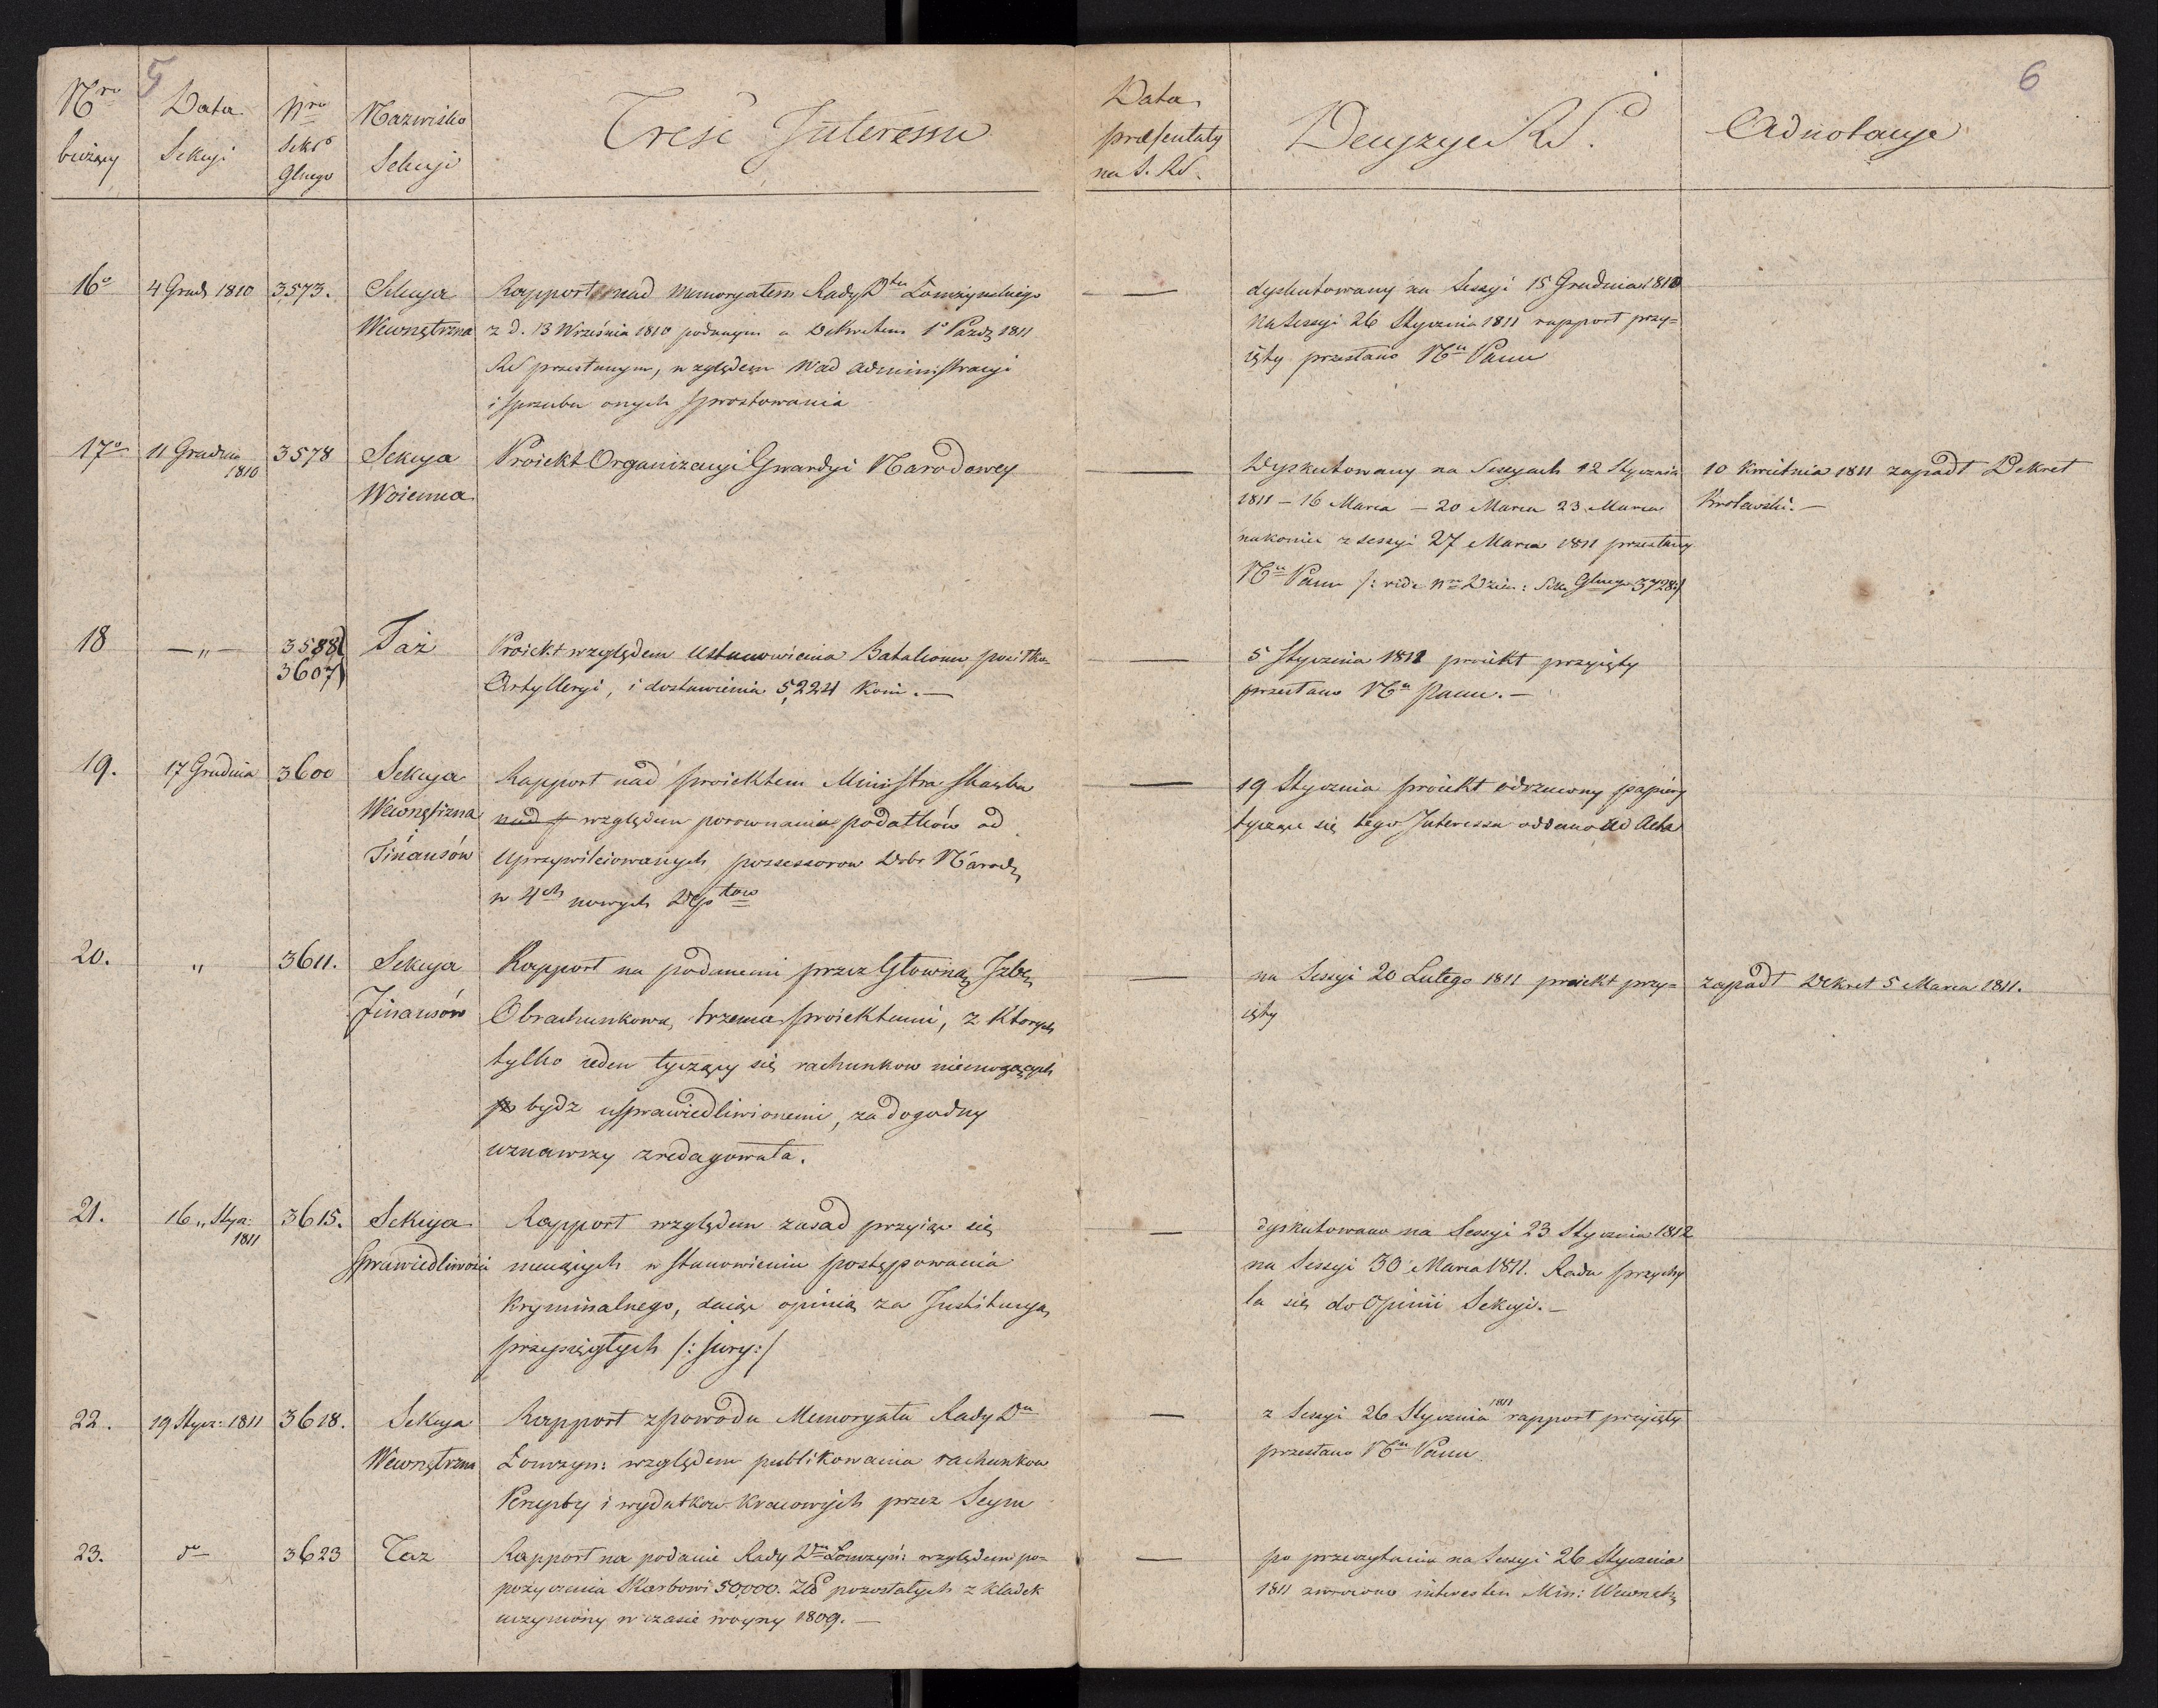 5
6
Nro
bieżący
Data
Sekcyi
Nro
Sekro
Glnego
Nazwisko
Sekcyi
Treść Interessu
Data
præsentaty
na S. RS.
Decyzye RS.
Adnotacye
16o
4 Grud. 1810
3573.
Sekcya
Wewnętrzna
Rapport nad memoryałem Rady Dtu Łomżyńskiego
z d. 13 Września 1810 podanym a Dekretem 1o Pazdz 1811
RS przesłanym, względem Wad administracyi
i sposobu onych sprostowania
—
dyskutowany na Sessyi 15 Grudnia 1810
Na Sessyi 26 Stycznia 1811 rapport przy=
ięty przesłano Nu Panu
17o
11 Grudnia
1810
3578
Sekcya
Woienna
Proiekt Organizacyi Gwardyi Narodowey
—
Dyskutowany na Sessyach 12 Stycznia
1811 – 16 Marca – 20 Marca 23 Marca
nakoniec z sessyi 27 Marca 1811 przesłany
Nu Panu /: vide Nro Dzien: Sekr Glnego 3728:/
10 Kwietnia 1811 zapadł Dekret
Krolewski. —
18
— „ —
3588
3607
Taż
Proiekt względem Ustanowienia Batalionu posiłko=
Artylleryi, i dostawienia 5,224 Koni. —
—
5 Stycznia 1811 proiekt przyięty
przesłano Nu Panu. —
19.
17 Grudnia
3600
Sekcya
Wewnętrzna
Finansów
Rapport nad proiektem Ministra Skarbu
nad p względem porownania podatków od
Uprzywileiowanych possessorow Dobr Narod.
w 4ch nowych Deptow
—
19 Stycznia proiekt odrzucony papiery
tyczące się tego Interessu oddano ad Acta
20.
„
3611.
Sekcya
Finansów
Rapport na podanemi przez Głowną Izbę
Obrachunkową trzema proiektami, z Ktorych
tylko ieden tyczący się rachunkow niemogących
po bydz usprawiedliwionemi, za dogodny
uznawszy zredagowała.
—
na Sessyi 20 Lutego 1811 proiekt przy=
ięty
zapadł Dekret 5 Marca 1811.
21.
16 „ Stycz:
1811
3615.
Sekcya
Sprawiedliwości
Rapport względem zasad przyiąc się
maiących w stanowieniu postępowania
Kryminalnego, daiąc opinią za Instytucyą
przysięgłych /: jury:/
—
dyskutowano na Sessyi 23 Stycznia 1812
na Sessyi 30 Marca 1811. Rada przychy
la się do Opinii Sekcyi. —
22.
19 Stycz: 1811
3618.
Sekcya
Wewnętrzna
Rapport z powodu Memoryału Rady Du
Łomżyn: względem publikowania rachunkow
Percepty i wydatkow Kraiowych przez Seym
—
z Sessyi 26 Stycznia 1811 rapport przyięty
przesłano Nu Panu
23.
do
3623
Taż
Rapport na podanie Rady Du Łomżyń: względem po=
pożyczenia Skarbowi 50,000. Złp pozostałych z kładek
uczyniony w czasie woyny 1809. —
—
po przeczytaniu na Sessyi 26 Stycznia
1811 zwrocono interes ten Min: Wewnętz